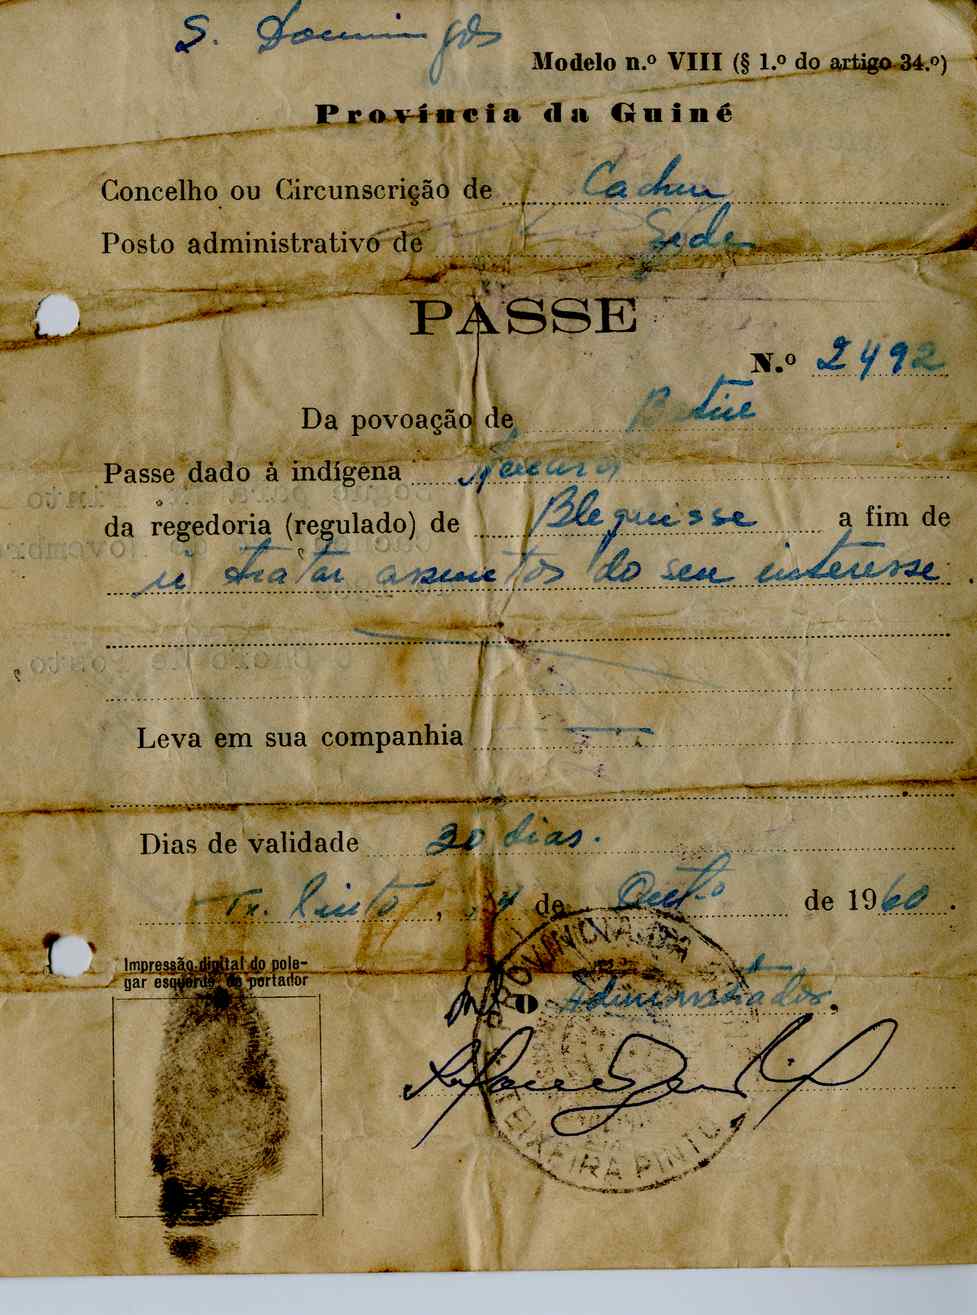 S. Domingos
Modelo n.º VIII (§ 1.º do artigo 34.º)
Província da Guiné
Concelho ou Circunscrição de Cacheu
Posto administrativo de Sede
PASSE
N.º 2492
Da povoação de
Passe dado à indígena
da regedoria (regulado) de Blequisse a fim de
ir tratar assuntos do seu interesse.
Leva em sua companhia
Dias de validade 30 dias.
Tx. Pinto, de Outº de 1960.
Impressão digital do pole-
gar esquerdo do portador
O Administrador,
PROVÍNCIA DA
TEIXEIRA PINTO